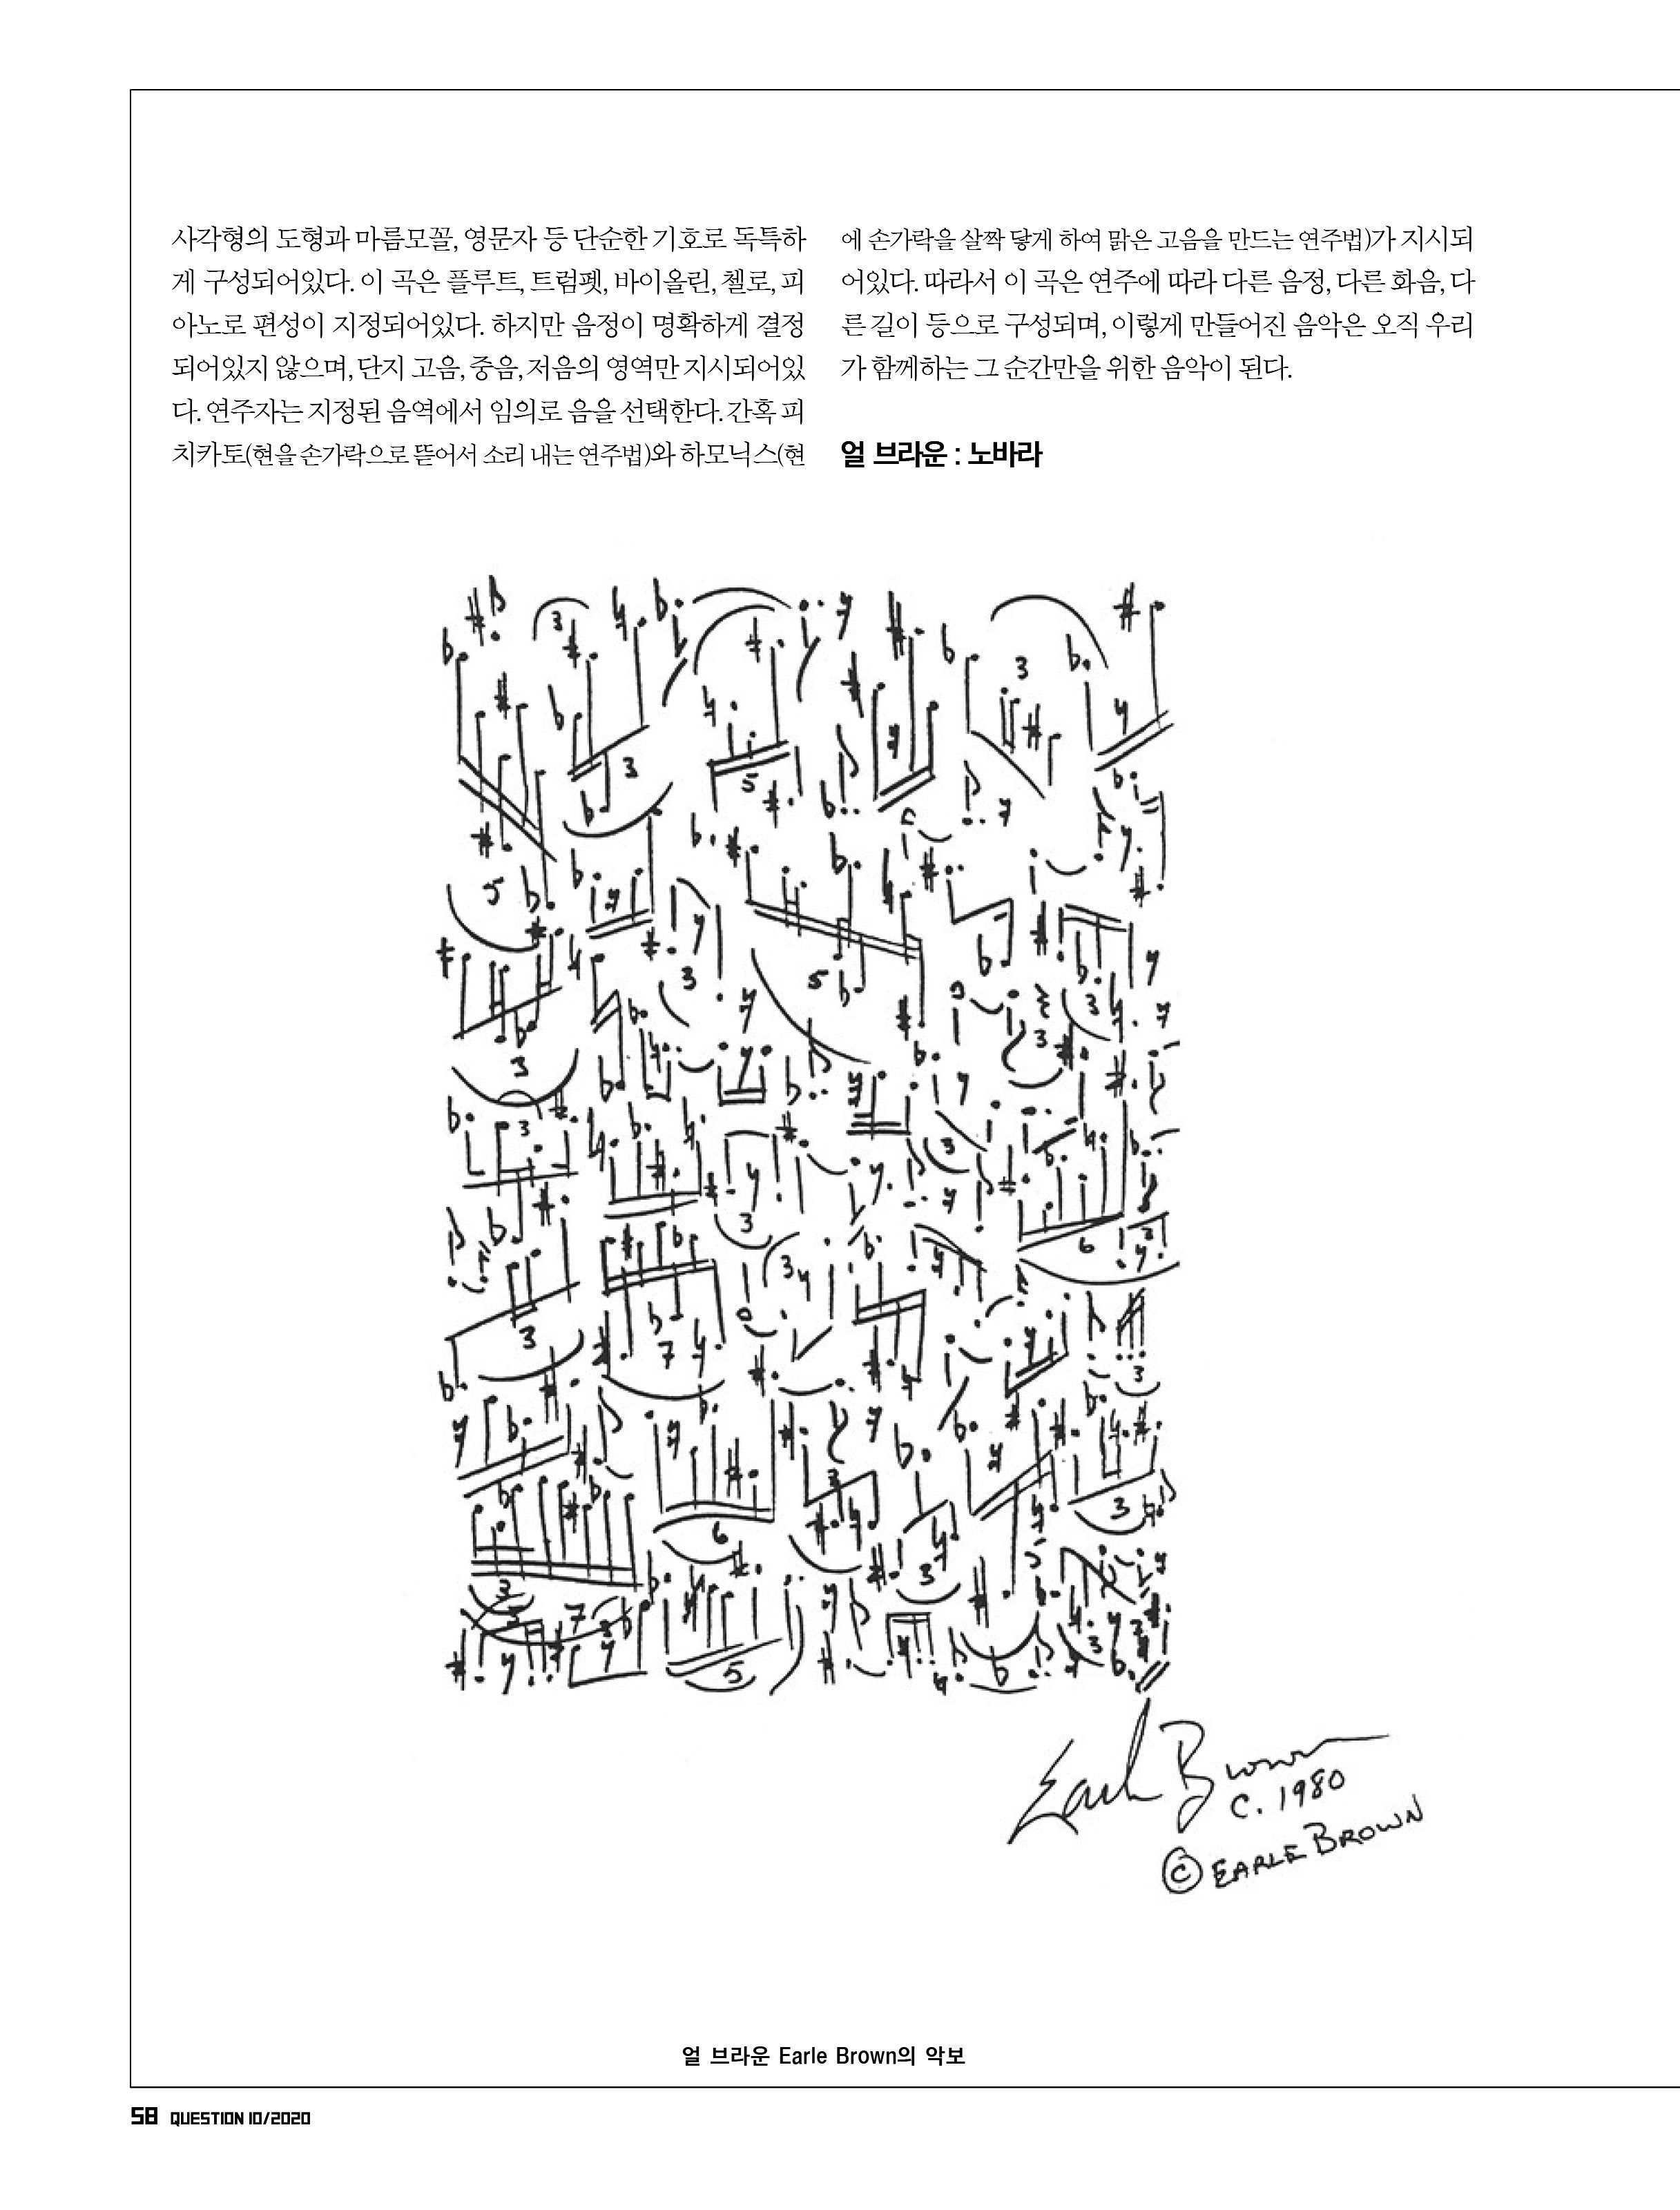 사각형의 도형과 마름모꼴, 영문자 등 단순한 기호로 독특하
게 구성되어있다. 이 곡은 플루트, 트럼펫, 바이올린, 첼로, 피
아노로 편성이 지정되어있다. 하지만 음정이 명확하게 결정
되어있지 않으며, 단지 고음, 중음, 저음의 영역만 지시되어있
다. 연주자는 지정된 음역에서 임의로 음을 선택한다. 간혹 피
치카토(현을 손가락으로 뜯어서 소리 내는 연주법)와 하모닉스(현
에 손가락을 살짝 닿게 하여 맑은 고음을 만드는 연주법)가 지시되
어있다. 따라서 이 곡은 연주에 따라 다른 음정, 다른 화음, 다
른 길이 등으로 구성되며, 이렇게 만들어진 음악은 오직 우리
가 함께하는 그 순간만을 위한 음악이 된다.
얼 브라운 : 노바라
Earle Brown
C. 1980
© EARLE BROWN
얼 브라운 Earle Brown의 악보
58 QUESTION 10/2020